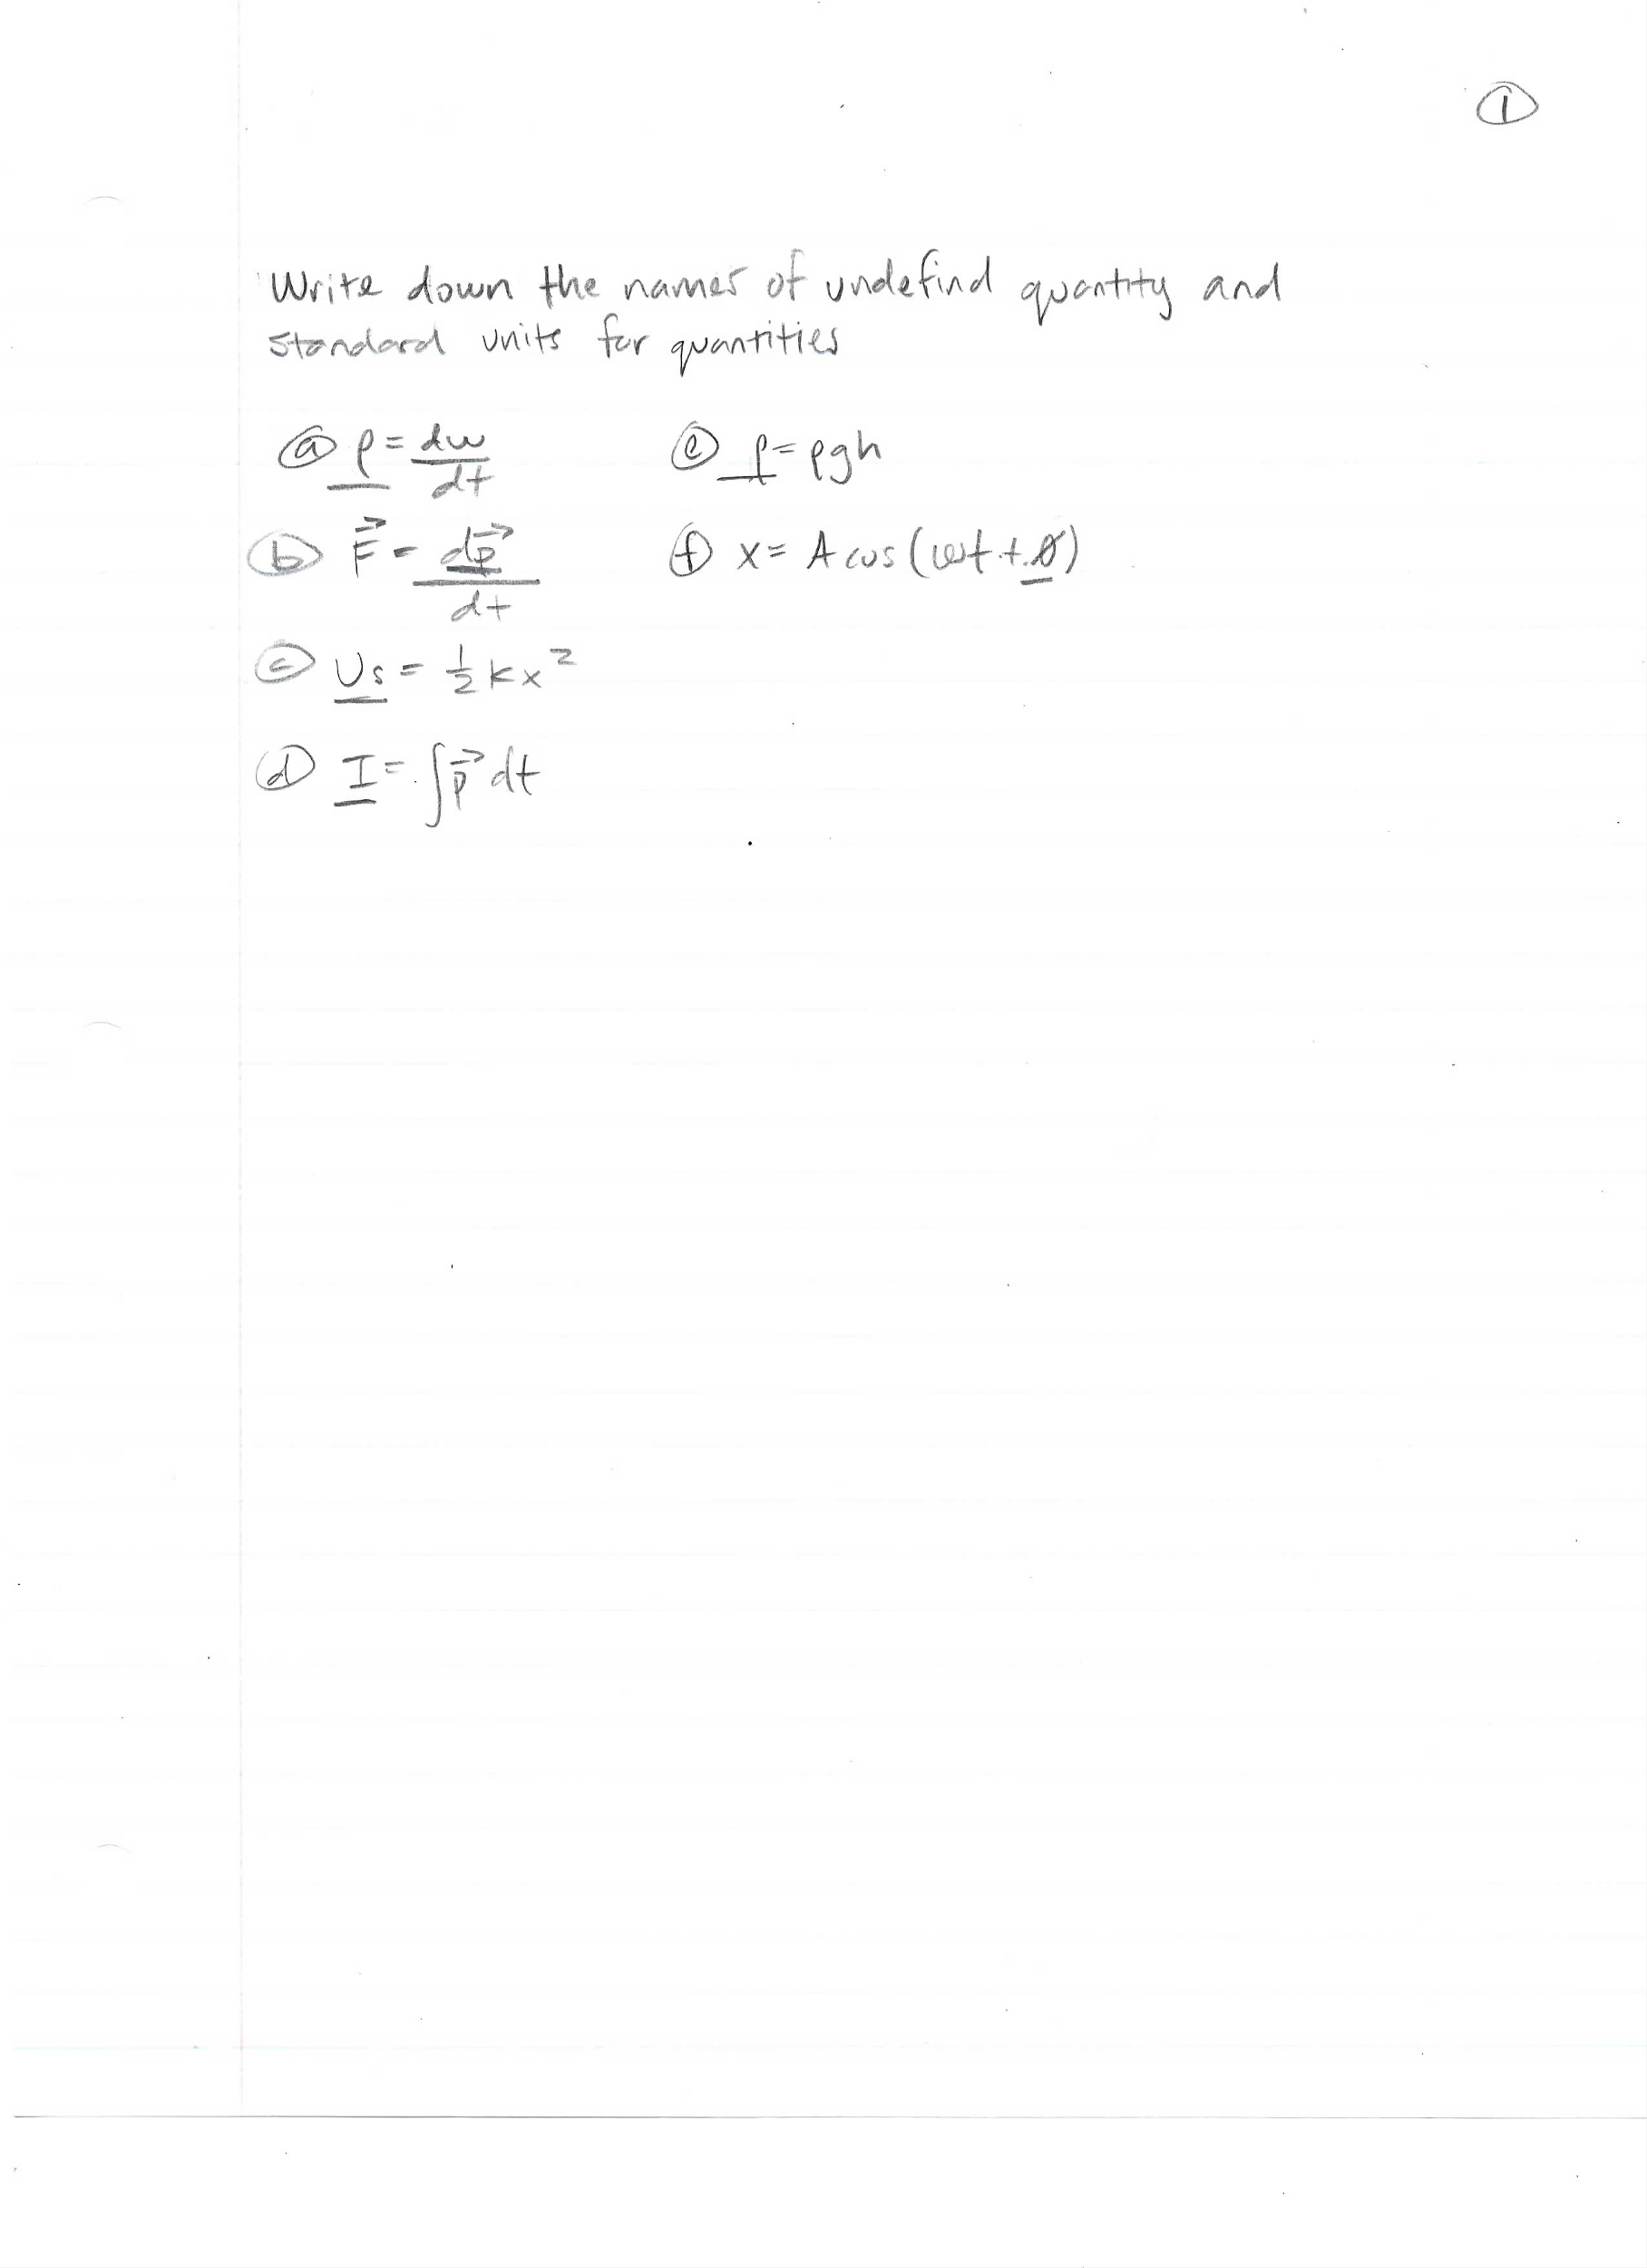 ①
Write down the names of undefind quantity and
standard units for quantities
ⓐ P = dw/dt
ⓑ F⃗ = dp⃗/dt
ⓒ Us = ½ kx²
ⓓ I = ∫p⃗ dt
ⓔ P = ρgh
ⓕ x = A cos(ωt + ø)